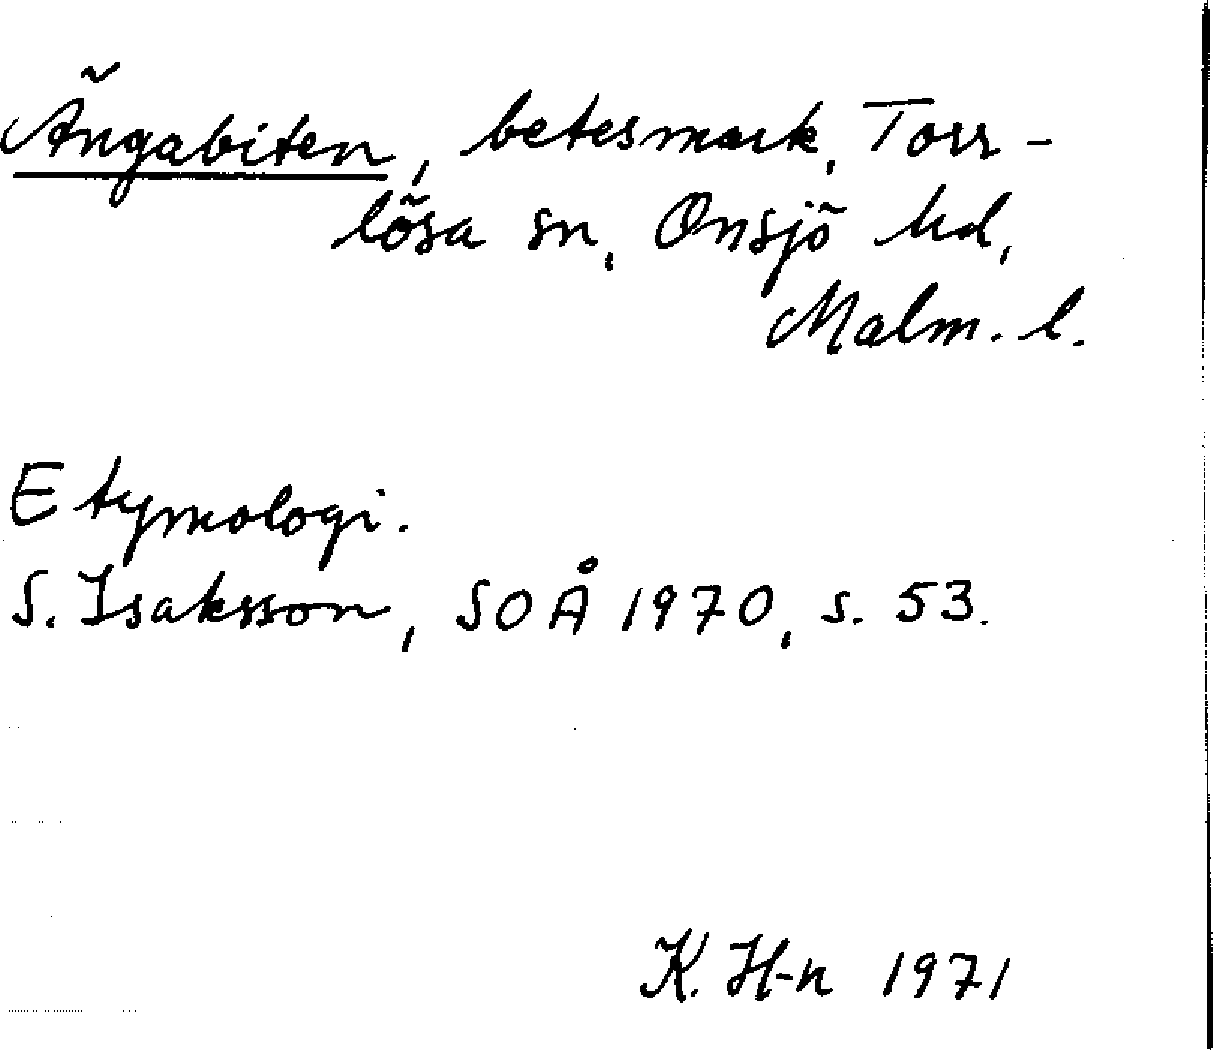 Ängabiten, betesmark, Torr-
lösa sn, Onsjö hd,
Malm. l.
Etymologi.
S. Isaksson, SOÅ 1970, s. 53.
K. H-n 1971